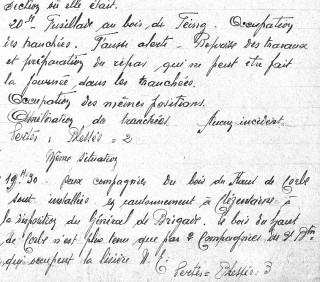 Section si elle était.
20H Fusillade au bois de Feing. Occupation
des tranchées. Fausse alerte - Reprise des travaux
et préparation du repas qui ne peut être fait
la journée dans les tranchées.
Occupation des mêmes positions.
Amélioration de tranchées. Aucun incident.
Pertes : Blessés = 2
Même situation
19H30 Deux compagnies du bois du Haut de Corbe
sont installées en cantonnement à Clézentaine à
la disposition du Général de Brigade. Le bois du Haut
de Corbe n'est plus tenu que par 2 Compagnies du
qui occupent la lisière N.E.
Pertes = Blessés : 3